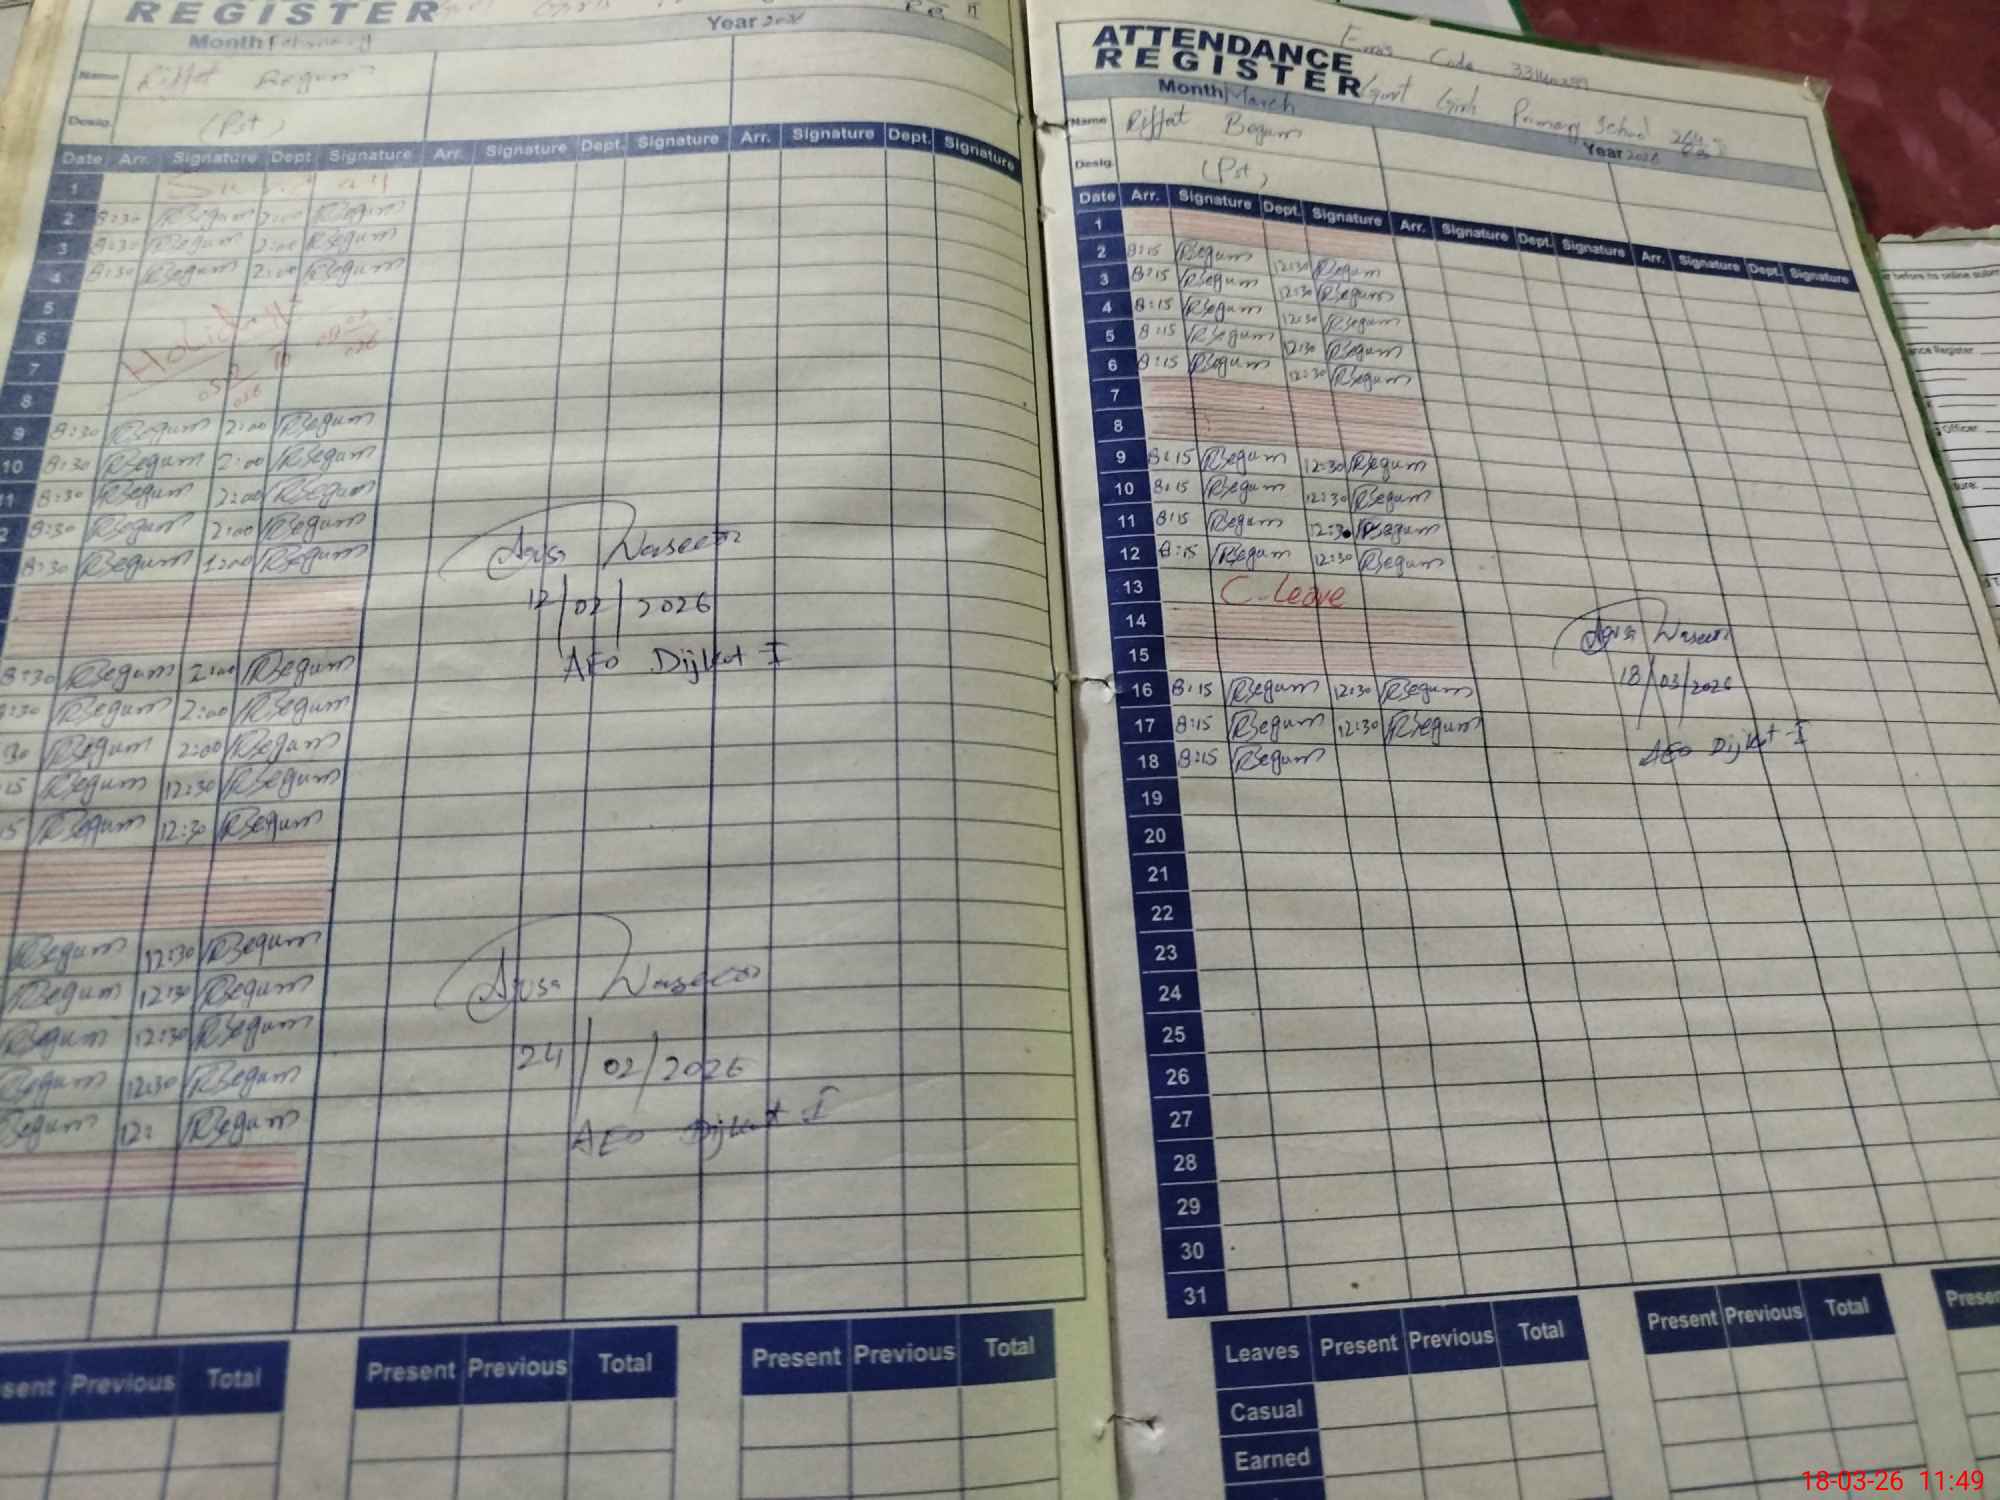 REGISTER
Month February
Year 2026
Name Riffat Begum
Desig. (Pst)
Date Arr. Signature Dept Signature Arr. Signature Dept. Signature Arr. Signature Dept. Signature
1 Sunday
2 8:30 RBegum 2:00 RBegum
3 8:30 RBegum 2:00 RBegum
4 8:30 RBegum 2:00 RBegum
5
6 Holidays
7
8
9 8:30 RBegum 2:00 RBegum
10 8:30 RBegum 2:00 RBegum
11 8:30 RBegum 2:00 RBegum
2 8:30 RBegum 2:00 RBegum
8:30 RBegum 1:00 RBegum
Aqsa Naseer
12/02/2026
AEO Dijkot I
8:30 RBegum 2:00 RBegum
8:30 RBegum 2:00 RBegum
30 RBegum 2:00 RBegum
15 RBegum 12:30 RBegum
15 RBegum 12:30 RBegum
RBegum 12:30 RBegum
RBegum 12:30 RBegum
RBegum 12:30 RBegum
RBegum 12:30 RBegum
Begum 12: RBegum
24/02/2026
AEO Dijkot I
sent Previous Total Present Previous Total Present Previous Total
Emis Code
ATTENDANCE
REGISTER
Govt Girls Primary School
Month March
Year 2026
Name Riffat Begum
Desig. (Pst)
Date Arr. Signature Dept. Signature Arr. Signature Dept. Signature Arr. Signature Dept. Signature
1
2 8:15 RBegum 12:30 RBegum
3 8:15 RBegum 12:30 RBegum
4 8:15 RBegum 12:30 RBegum
5 8:15 RBegum 12:30 RBegum
6 8:15 RBegum 12:30 RBegum
7
8
9 8:15 RBegum 12:30 RBegum
10 8:15 RBegum 12:30 RBegum
11 8:15 RBegum 12:30 RBegum
12 8:15 RBegum 12:30 RBegum
13 C-Leave
14
15
16 8:15 RBegum 12:30 RBegum
17 8:15 RBegum 12:30 RBegum
18 8:15 RBegum
18/03/2026
AEO Dijkot I
19
20
21
22
23
24
25
26
27
28
29
30
31
Leaves Present Previous Total Present Previous Total Presen
Casual
Earned
18-03-26 11:49